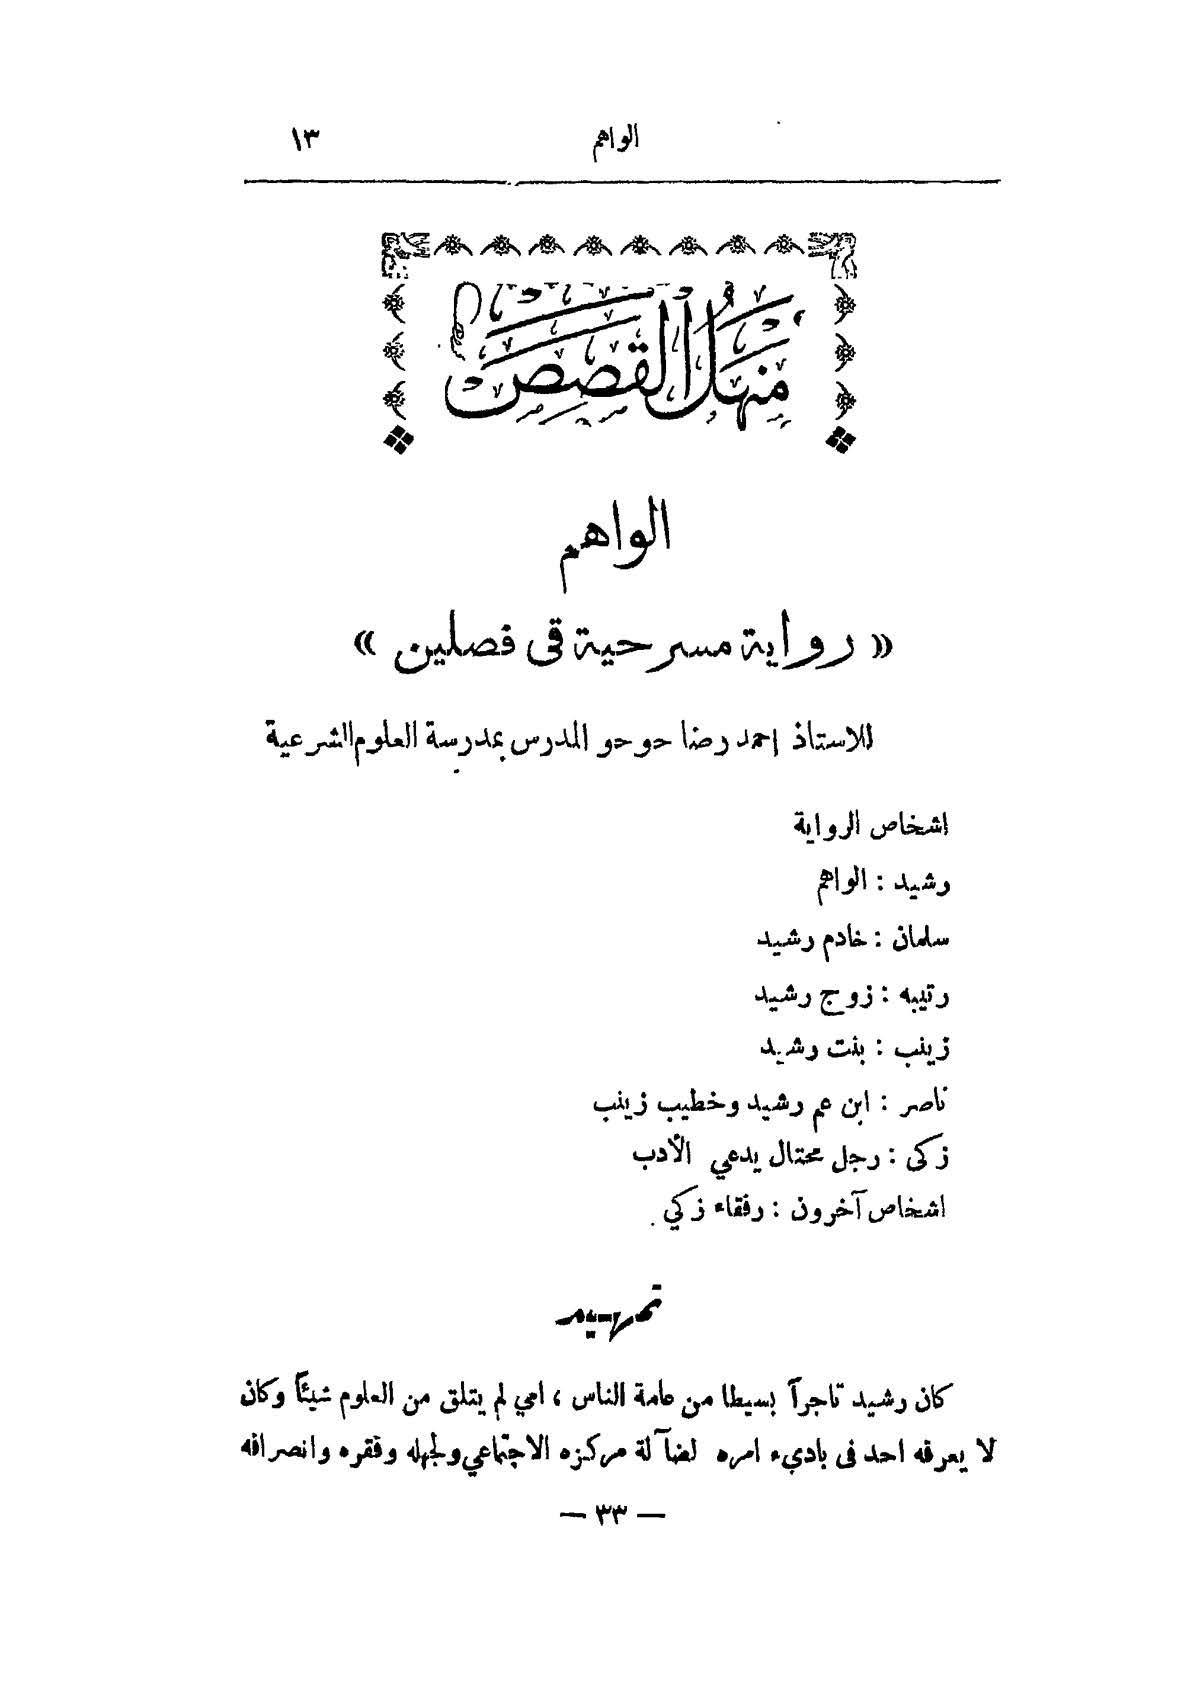 الواهم ١٣
منهل القصص
الواهم
« رواية مسرحية فى فصلين »
للاستاذ احمد رضا حوحو المدرس بمدرسة العلوم الشرعية
اشخاص الرواية
رشيد : الواهم
سلمان : خادم رشيد
رتيبه : زوج رشيد
زينب : بنت رشيد
ناصر : ابن عم رشيد وخطيب زينب
زكى : رجل محتال يدعي الأدب
اشخاص آخرون : رفقاء زكي .
تمهيد
كان رشيد تاجرآ بسيطا من عامة الناس ، امي لم يتلق من العلوم شيئاً وكان
لا يعرفه احد فى باديء امره لضآلة مركزه الاجتماعي ولجهله وفقره وانصرافه
— ٣٣ —